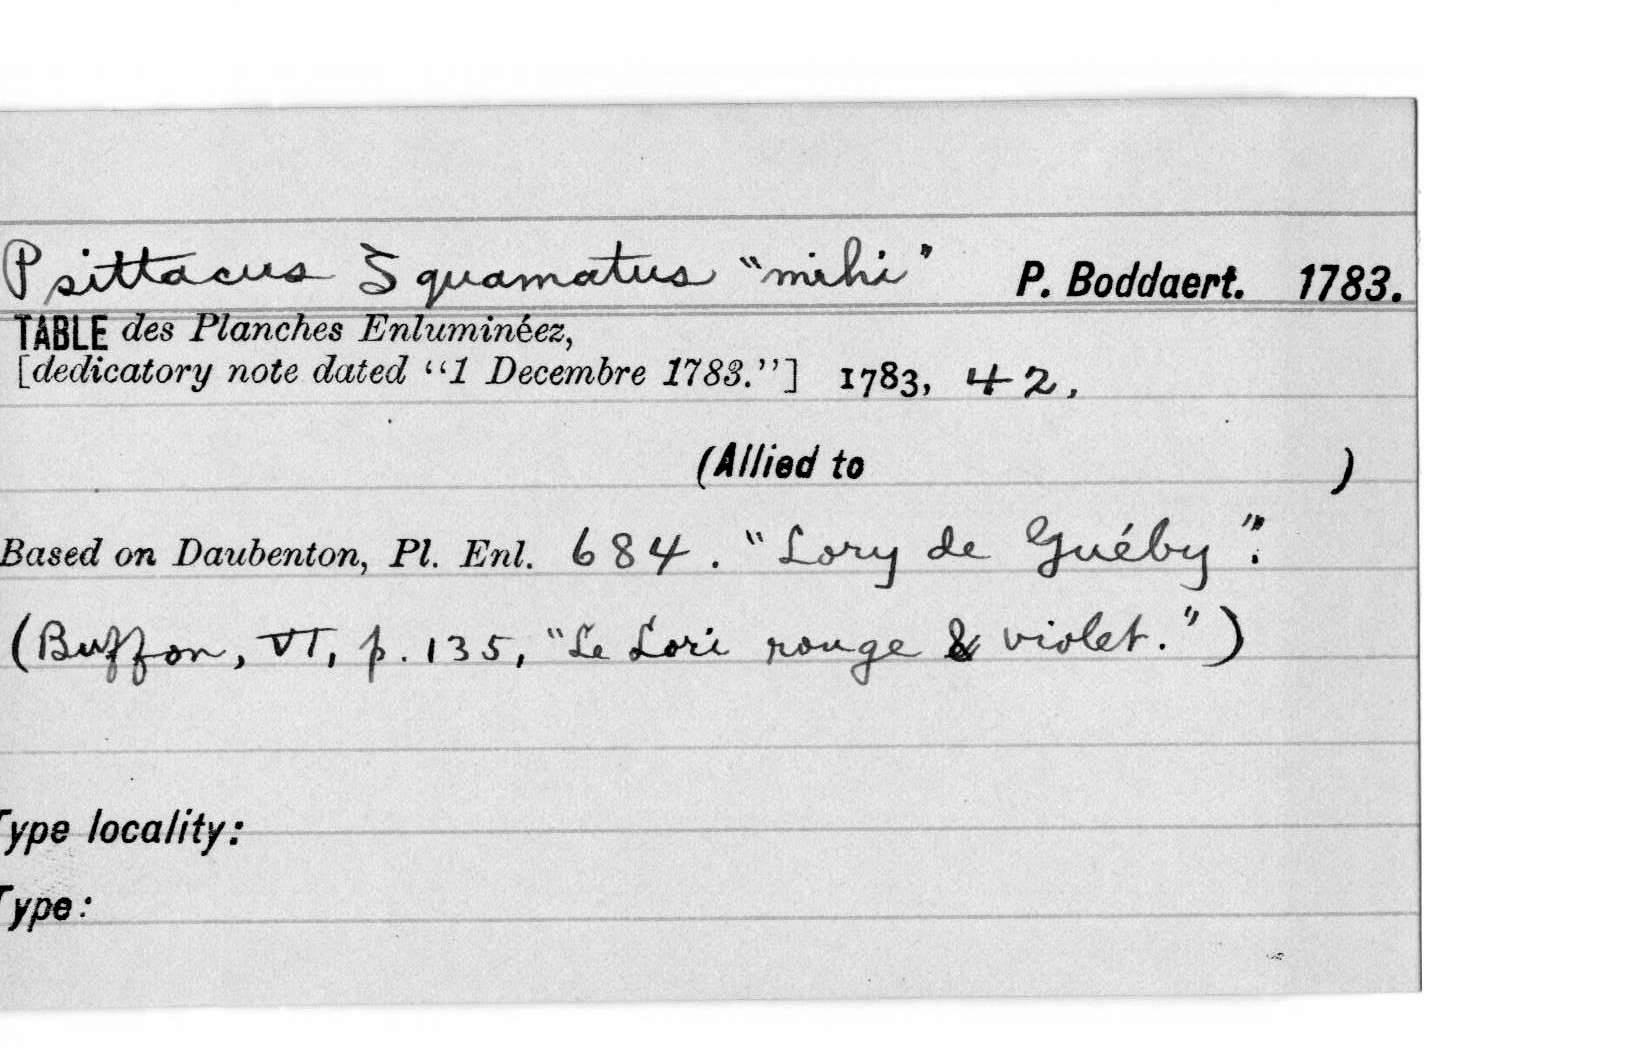 Psittacus Squamatus "mihi" P. Boddaert. 1783.
TABLE des Planches Enluminéez,
[dedicatory note dated "1 Decembre 1783."] 1783, 42,
(Allied to )
Based on Daubenton, Pl. Enl. 684. "Lory de Guéby".
(Buffon, VI, p. 135, "Le Lori rouge & violet.")
Type locality:
Type: